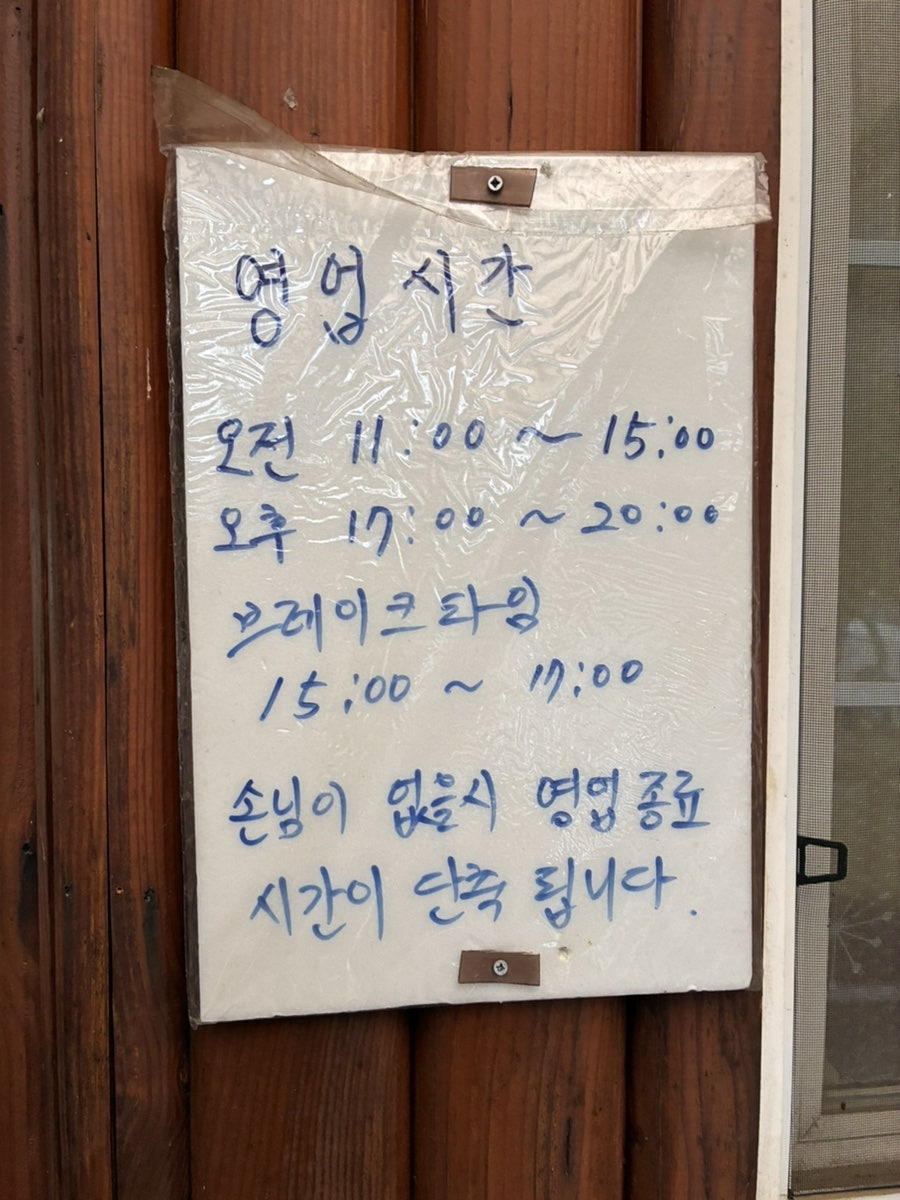 영업시간
오전 11:00 ~ 15:00
오후 17:00 ~ 20:00
브레이크타임
15:00 ~ 17:00
손님이 없을시 영업종료
시간이 단축 됩니다.